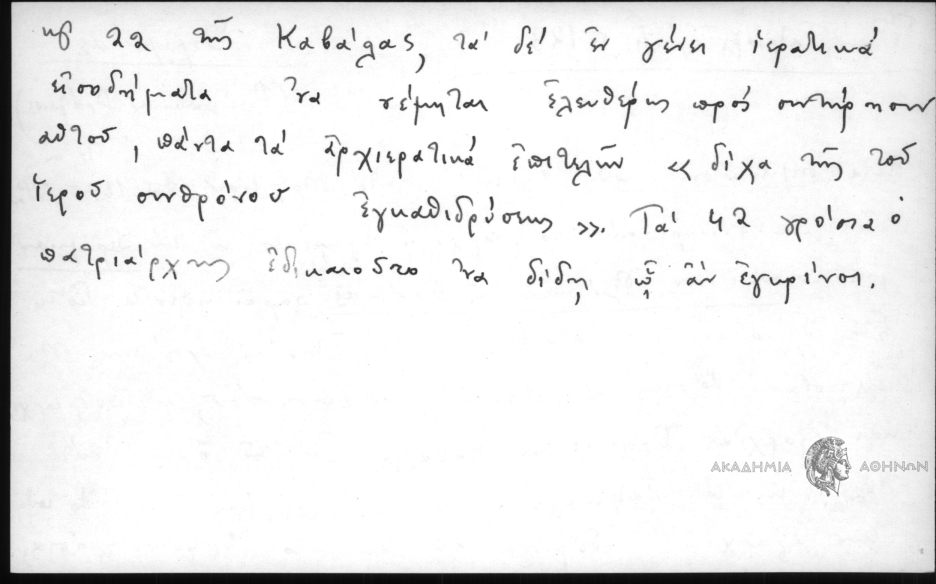 καί 22 τῆς Καβάλας, τά δέ ἐν γένει ἱερατικά
εἰσοδήματα ἵνα νέμηται ἐλευθέρως πρός συντήρησιν
αὐτοῦ, πάντα τά ἀρχιερατικά ἐπιτελῶν «δίχα τῆς τοῦ
Ἱεροῦ συνθρόνου ἐγκαθιδρύσεως». Τά 42 γρόσια ὁ
πατριάρχης ἐδικαιοῦτο ἵνα δίδῃ ᾧ ἄν ἐγκρίνοι.
ΑΚΑΔΗΜΙΑ ΑΘΗΝΩΝ